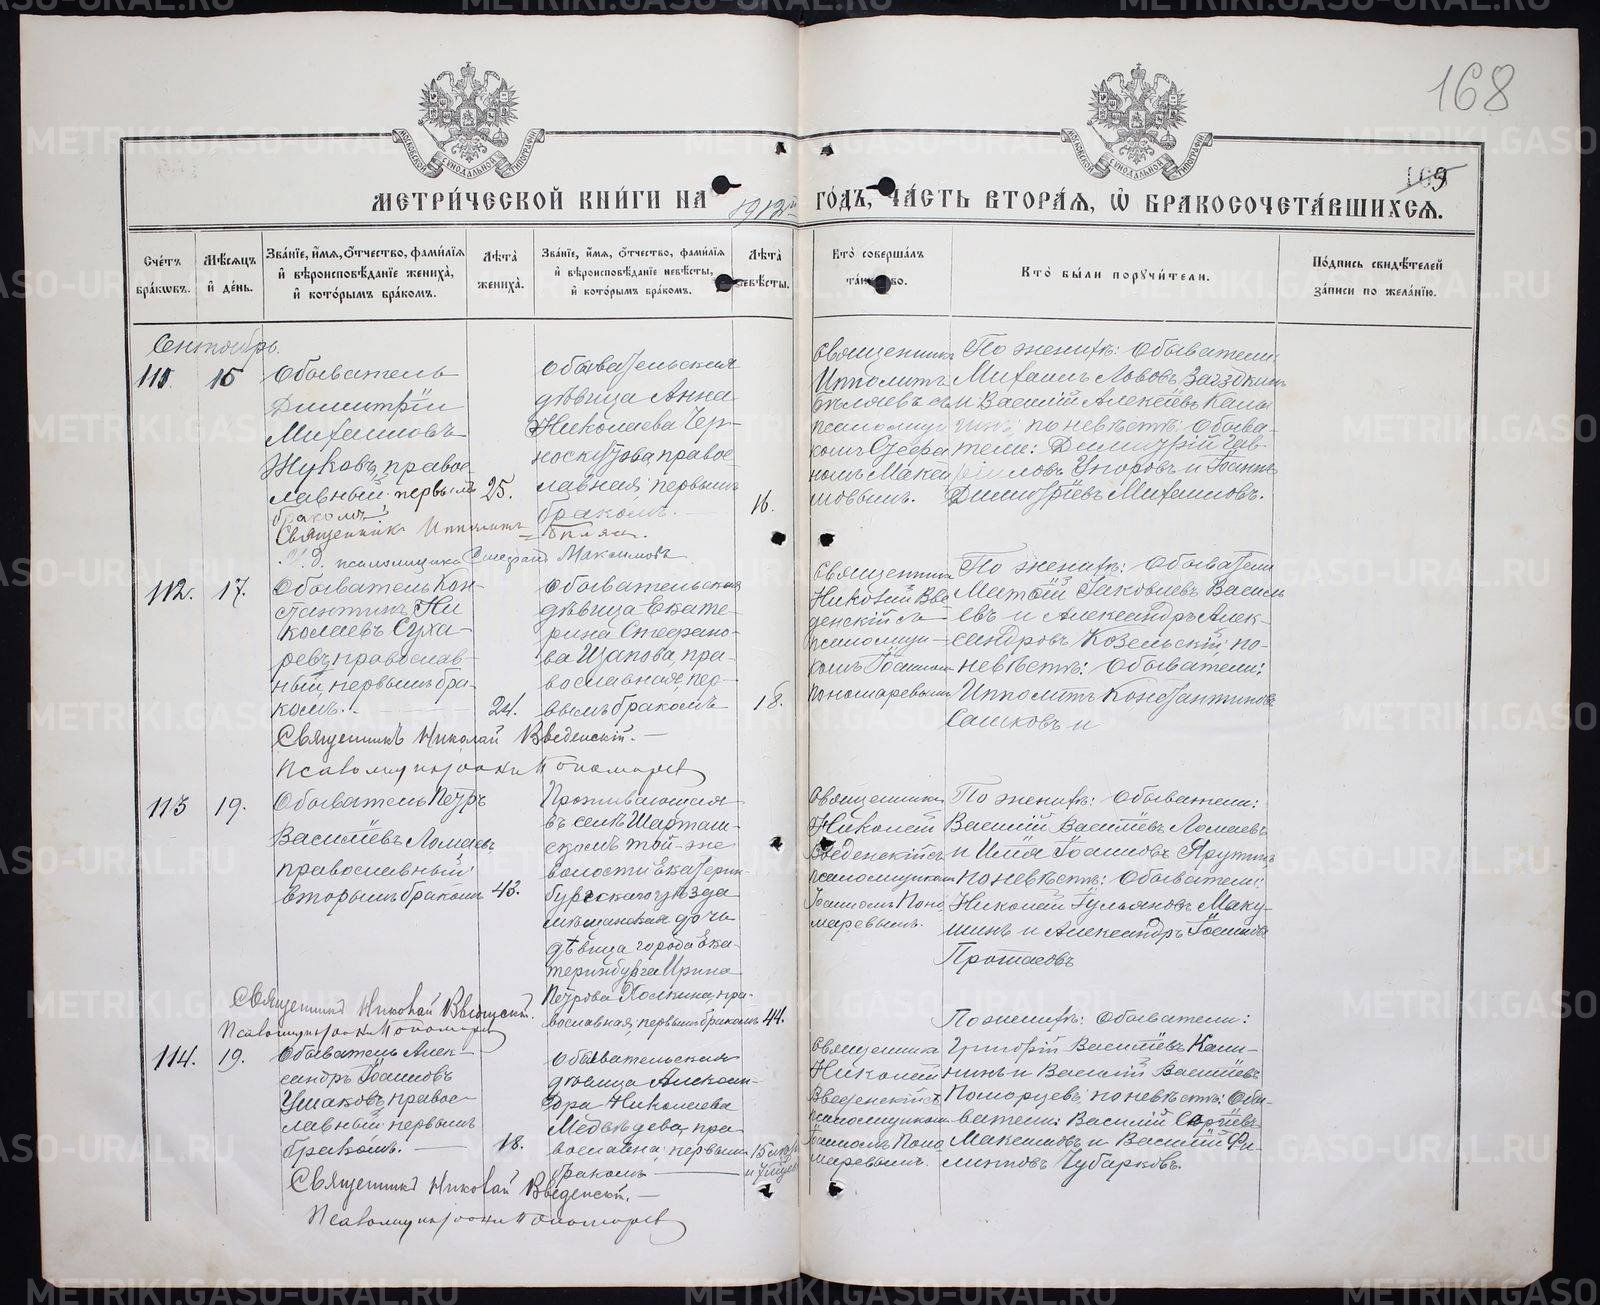 168
МЕТРИ́ЧЕСКОЙ КНИ́ГИ НА 1912й ГО́ДЪ, ЧА́СТЬ ВТОРА́Я, Ѡ БРАКОСОЧЕТА́ВШИХСЯ.
Сче́тъ бра́кѡвъ.
Мѣ́сяцъ и҆ де́нь.
Зва́нїе, и҆́мя, ѻ҆́тчество, фами́лїя и҆ вѣроисповѣ́данїе жениха̀, и҆ кото́рымъ бра́комъ.
Лѣ́та жениха̀.
Зва́нїе, и҆́мя, ѻ҆́тчество, фами́лїя и҆ вѣроисповѣ́данїе невѣ́сты, и҆ кото́рымъ бра́комъ.
Лѣ́та невѣ́сты.
Кто̀ соверша́лъ та́инство.
Кто̀ бы́ли поручи́тели.
По́дпись свидѣ́телей за́писи по жела́нїю.
Сентябрь.
111.
15
Обыватель
Димитрій
Михаиловъ
Жуковъ, право-
славный, первымъ
бракомъ.
25.
обывательская
дѣвица Анна
Николаева Чер-
носкутова, право-
славная, первымъ
бракомъ.
16.
Священникъ
Ипполитъ
Бѣляевъ съ
псаломщи-
комъ
Макси-
мовымъ.
По женихѣ: Обыватели
Михаилъ
и Василій Алексѣевъ
по невѣстѣ: Обыва-
тели: Димитрій Гав-
риловъ Упоровъ и Іоаннъ
Димитріевъ Михаиловъ.
Священникъ Ипполитъ Бѣляевъ.
И. д. псаломщика Максимовъ
112.
17.
Обыватель Кон-
стантинъ Ни-
колаевъ Суха-
ревъ, православ-
ный, первымъ бра-
комъ.
24.
Обывательская
дѣвица Екате-
рина Стефано-
ва Щапова, пра-
вославная, пер-
вымъ бракомъ
18.
Священникъ
Николай Вве-
денскій съ
псаломщи-
комъ Іоанномъ
Пономаревымъ
По женихѣ: Обыватели
Матѳій Іаковлевъ Василь-
евъ и Александръ Алек-
сандровъ Козельскій; по
невѣстѣ: Обыватели:
Ипполитъ Константиновъ
Сашковъ и
Священникъ Николай Введенскій.
Псаломщикъ Іоаннъ Пономаревъ
113
19.
Обыватель Петръ
Василіевъ Ломаевъ
православный
вторымъ бракомъ
43.
Проживающая
въ селѣ Шарташ-
скомъ той-же
волости Екатерин-
бургскаго уѣзда
мѣщанская дочь
дѣвица города Ека-
теринбурга Ирина
Петрова Полкина, пра-
вославная, первымъ бракомъ
44.
Священникъ
Николай
Введенскій съ
псаломщикомъ
Іоанномъ Поно-
маревымъ.
По женихѣ: Обыватели:
Василій Василіевъ Ломаевъ
и Илія Іоанновъ Ярутинъ
по невѣстѣ: Обыватели:
Николай Іульяновъ Маку-
шинъ и Александръ Іоанновъ
Протасовъ
Священникъ Николай Введенскій.
Псаломщикъ Іоаннъ Пономаревъ
114.
19.
Обыватель Алек-
сандръ Іоанновъ
Ушаковъ, право-
славный, первымъ
бракомъ.
18.
Обывательская
дѣвица Алексан-
дра Николаева
Медвѣдева, пра-
вославная, первымъ
бракомъ
15 лѣтъ
Священникъ
Николай
Введенскій съ
псаломщикомъ
Іоанномъ Поно-
маревымъ.
По женихѣ: Обыватели:
Григорій Василіевъ Кали-
нинъ и Василій Василіевъ
Поморцевъ, по невѣстѣ: Обы-
ватели: Василій Сергіевъ
Максимовъ и Василій Фи-
липповъ Чубарковъ.
Священникъ Николай Введенскій.
Псаломщикъ Іоаннъ Пономаревъ
METRIKI.GASO-URAL.RU